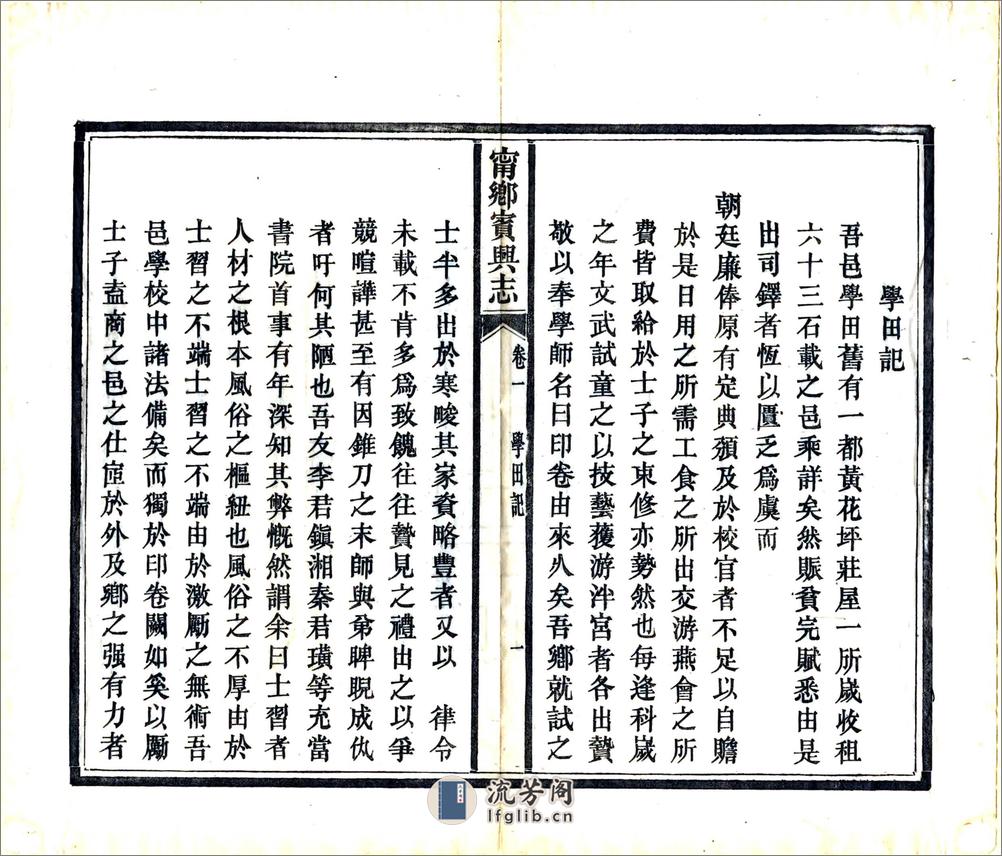 學田記
吾邑學田舊有一都黃花坪莊屋一所歲收租
六十三石載之邑乘詳矣然賑貧完賦悉由是
出司鐸者恆以匱乏爲虞而
朝廷廉俸原有定典頒及於校官者不足以自贍
於是日用之所需工食之所出交游燕會之所
費皆取給於士子之束修亦勢然也每逢科歲
之年文武試童之以技藝獲游泮宮者各出贄
敬以奉學師名曰印卷由來久矣吾鄉就試之
甯鄉賓興志
卷一 學田記 一
士半多出於寒畯其家資略豐者又以 律令
未載不肯多爲致餽往往贄見之禮出之以爭
競喧譁甚至有因錐刀之末師與弟睥睨成仇
者吁何其陋也吾友李君鎭湘秦君璜等充當
書院首事有年深知其弊慨然謂余曰士習者
人材之根本風俗之樞紐也風俗之不厚由於
士習之不端士習之不端由於激勵之無術吾
邑學校中諸法備矣而獨於印卷闕如奚以勵
士子盍商之邑之仕宦於外及鄉之强有力者
流芳阁
lfglib.cn